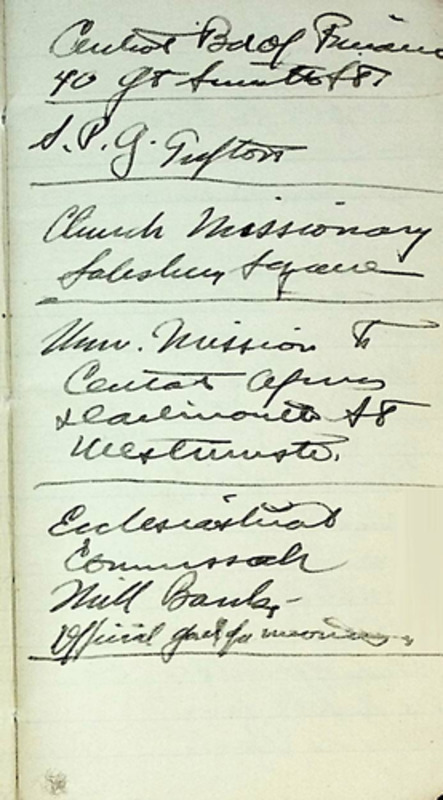 Central Bd of Finance
40 Gt Smith St
S. P. G. Tufton
Church Missionary
Salisbury Square
Univ. Mission to
Central Africa
Dartmouth St
Westminster.
Ecclesiastical
Commissah
Mill Bank -
Official